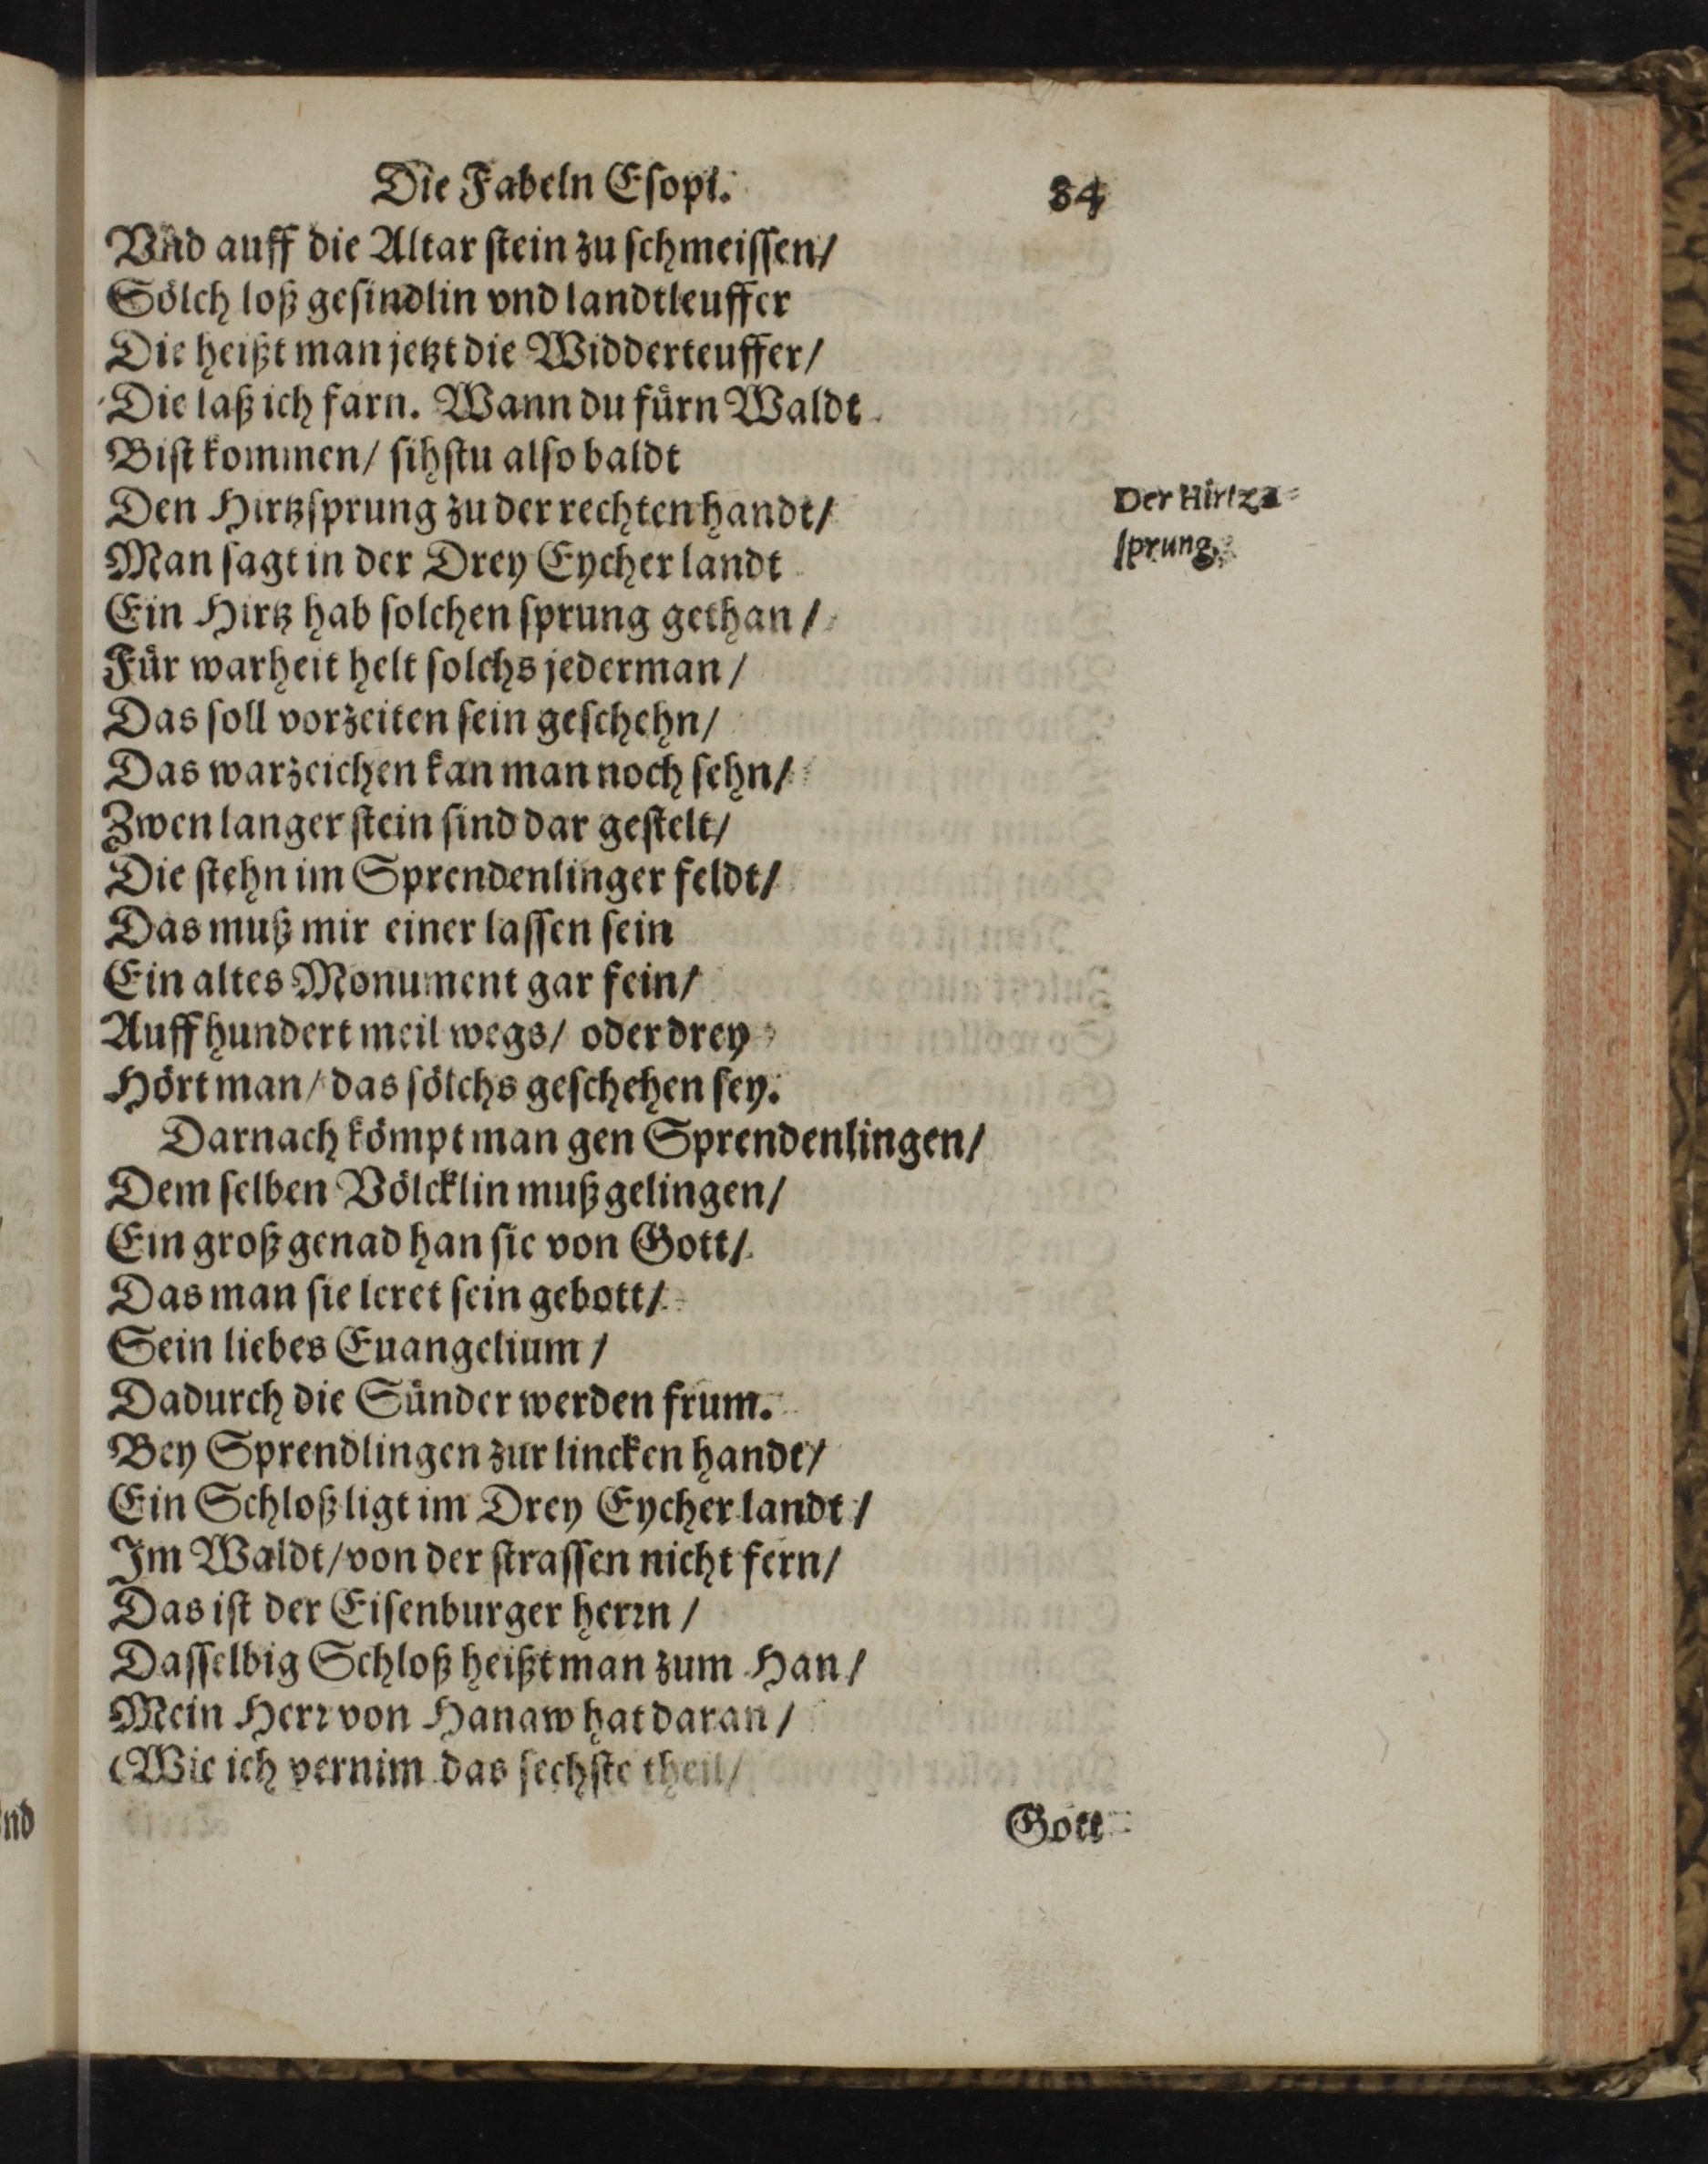 Die Fabeln Esopi. 34
Vnd auff die Altar stein zu schmeissen/
Sölch loß gesindlin vnd landtleuffer
Die heißt man jetzt die Widderteuffer/
Die laß ich farn. Wann du fürn Waldt
Bist kommen/ sihstu also baldt
Den Hirtzsprung zu der rechten handt/
Der Hirtz=
sprung.
Man sagt in der Drey Eycher landt
Ein Hirtz hab solchen sprung gethan/
Für warheit helt solchs jederman/
Das soll vorzeiten sein geschehn/
Das warzeichen kan man noch sehn/
Zwen langer stein sind dar gestelt/
Die stehn im Sprendenlinger feldt/
Das muß mir einer lassen sein
Ein altes Monument gar fein/
Auff hundert meil wegs/ oder drey
Hört man/ das sölchs geschehen sey.
Darnach kömpt man gen Sprendenlingen/
Dem selben Völcklin muß gelingen/
Ein groß genad han sie von Gott/
Das man sie leret sein gebott/
Sein liebes Euangelium/
Dadurch die Sünder werden frum.
Bey Sprendlingen zur lincken handt/
Ein Schloß ligt im Drey Eycher landt/
Im Waldt/ von der strassen nicht fern/
Das ist der Eisenburger herrn/
Dasselbig Schloß heißt man zum Han/
Mein Herr von Hanaw hat daran/
(Wie ich vernim das sechste theil/
Gott
nd